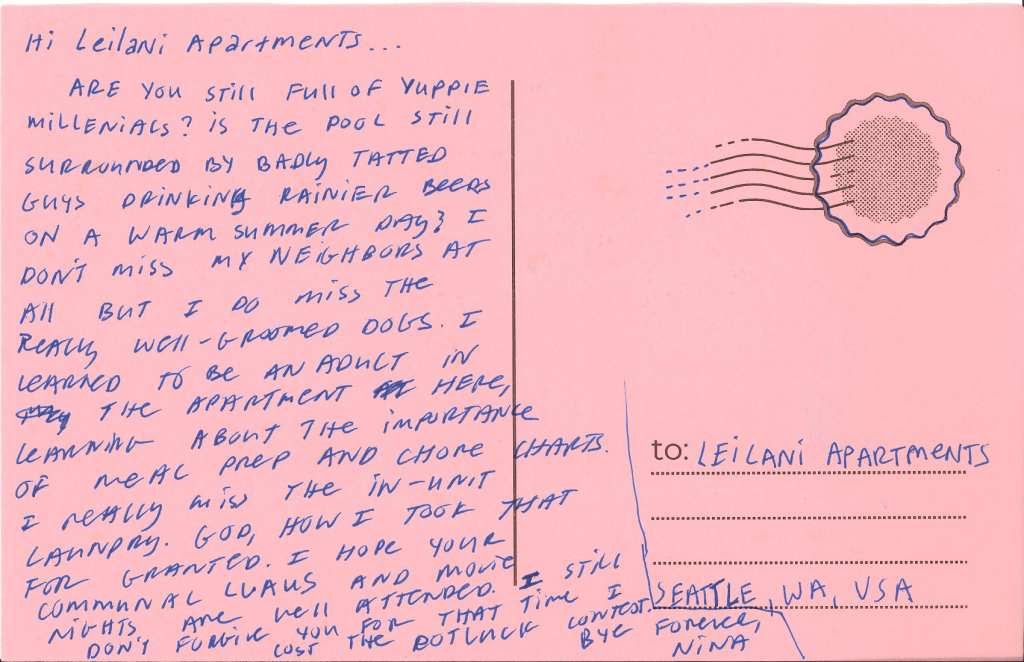 Hi Leilani Apartments...
ARE YOU Still Full OF YUPPIE
MillENiAls? iS THE POOL STill
SURROUNDED BY BADly TATTED
GUYS DRINKING RAINIER BEERS
ON A WARM SUMMER DAY? I
DON'T miss MY NEiGHBORS AT
All BUT I DO miss THE
REAlly WEll-GROOMED DOGS. I
LEARNED TO BE AN ADULT IN
THE APARTMENT HERE,
LEARNING ABOUT THE IMPORTANCE
OF MEAL PREP AND CHORE CHARTS.
I REAlly miss THE IN-UNIT
LAUNDRY. GOD, HOW I TOOK THAT
FOR GRANTED. I HOPE YOUR
COMMUNAL LUAUS AND MOVIE
NIGHTS ARE WEll ATTENDED. I STill
DON'T FORGIVE YOU FOR THAT TIME I
LOST THE POTLUCK CONTEST.
BYE FOREVER,
NiNA
to: LEILANI APARTMENTS
SEATTLE, WA, USA